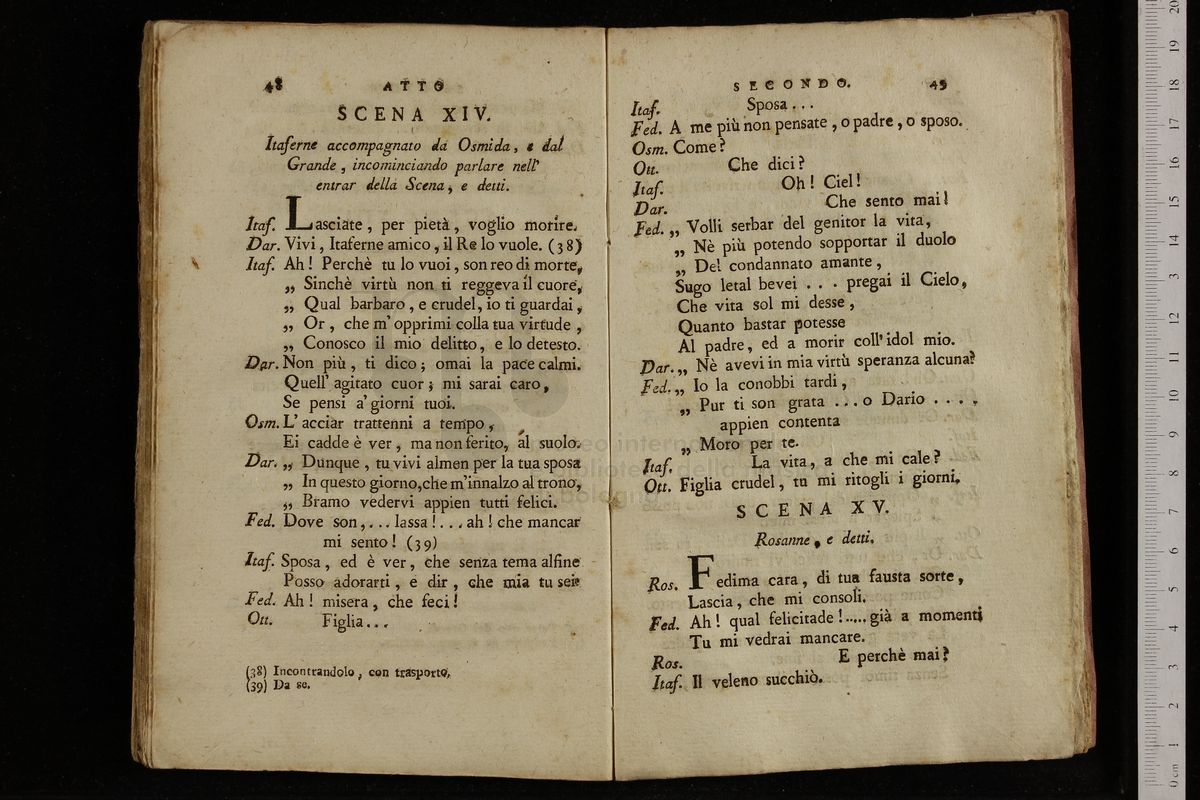 48 ATTO
SCENA XIV.
Itaferne accompagnato da Osmida, e dal
Grande, incominciando parlare nell'
entrar della Scena, e detti.
Itaf. Lasciate, per pietà, voglio morire.
Dar. Vivi, Itaferne amico, il Re lo vuole. (38)
Itaf. Ah! Perchè tu lo vuoi, son reo di morte,
„ Sinchè virtù non ti reggeva il cuore,
„ Qual barbaro, e crudel, io ti guardai,
„ Or, che m'opprimi colla tua virtude,
„ Conosco il mio delitto, e lo detesto.
Dar. Non più, ti dico; omai la pace calmi.
Quell' agitato cuor; mi sarai caro,
Se pensi a' giorni tuoi.
Osm. L' acciar trattenni a tempo,
Ei cadde è ver, ma non ferito, al suolo.
Dar. „ Dunque, tu vivi almen per la tua sposa
„ In questo giorno, che m'innalzo al trono,
„ Bramo vedervi appien tutti felici.
Fed. Dove son,... lassa!... ah! che mancar
mi sento! (39)
Itaf. Sposa, ed è ver, che senza tema alfine
Posso adorarti, e dir, che mia tu sei?
Fed. Ah! misera, che feci!
Ott. Figlia...
(38) Incontrandolo, con trasporto,
(39) Da se.
SECONDO. 49
Itaf. Sposa...
Fed. A me più non pensate, o padre, o sposo.
Osm. Come?
Ott. Che dici?
Itaf. Oh! Ciel!
Dar. Che sento mai!
Fed. „ Volli serbar del genitor la vita,
„ Nè più potendo sopportar il duolo
„ Del condannato amante,
Sugo letal bevei . . . pregai il Cielo,
Che vita sol mi desse,
Quanto bastar potesse
Al padre, ed a morir coll'idol mio.
Dar. „ Nè avevi in mia virtù speranza alcuna?
Fed. „ Io la conobbi tardi,
„ Pur ti son grata ... o Dario . . . .
appien contenta
„ Moro per te.
Itaf. La vita, a che mi cale?
Ott. Figlia crudel, tu mi ritogli i giorni.
SCENA XV.
Rosanne, e detti.
Ros. Fedima cara, di tua fausta sorte,
Lascia, che mi consoli.
Fed. Ah! qual felicitade!..... già a momenti
Tu mi vedrai mancare.
Ros. E perchè mai?
Itaf. Il veleno succhiò.